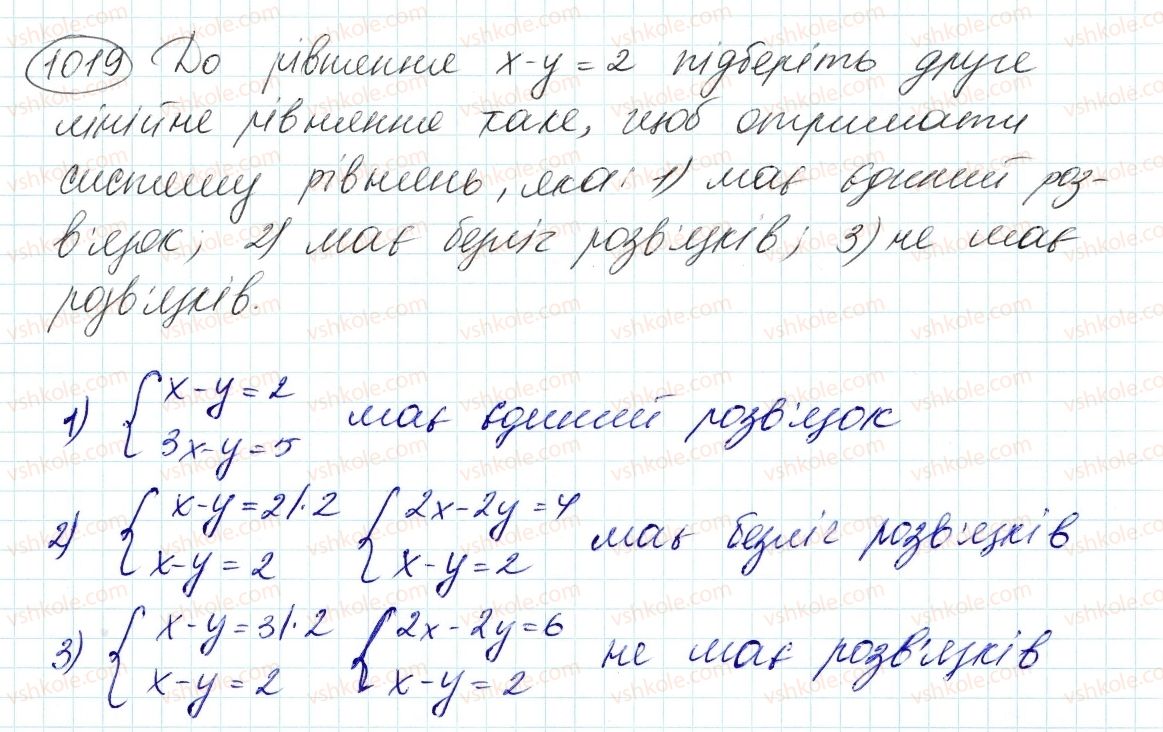 1019 До рівняння x-y=2 підберіть друге
лінійне рівняння таке, щоб отримати
систему рівнянь, яка: 1) має єдиний роз-
в'язок; 2) має безліч розв'язків; 3) не має
розв'язків.
1) { x-y=2
3x-y=5 має єдиний розв'язок
2) { x-y=2|·2 { 2x-2y=4 має безліч розв'язків
x-y=2 x-y=2
3) { x-y=3|·2 { 2x-2y=6 не має розв'язків
x-y=2 x-y=2
vshkole.com